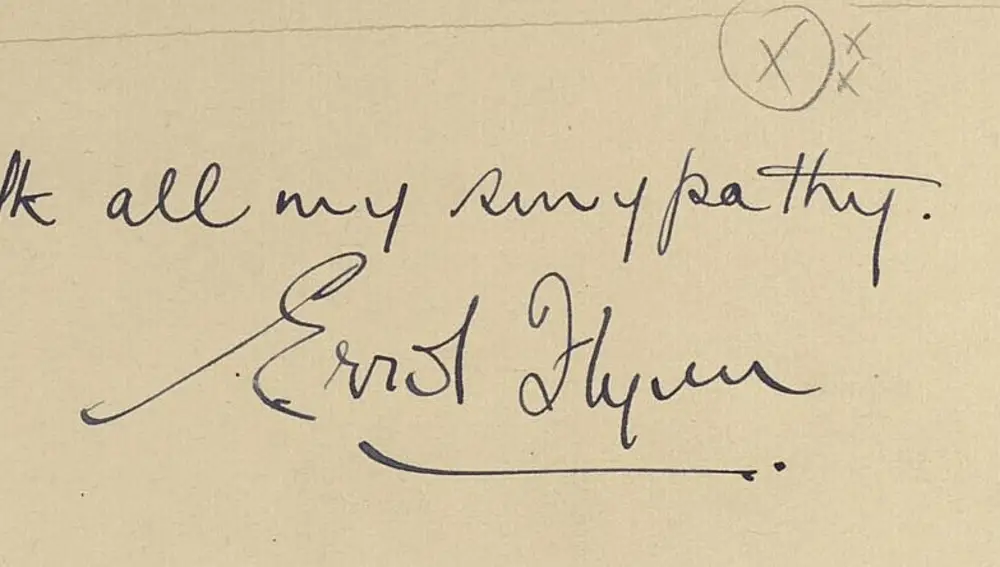 X x
x
all my sympathy.
Errol Flynn